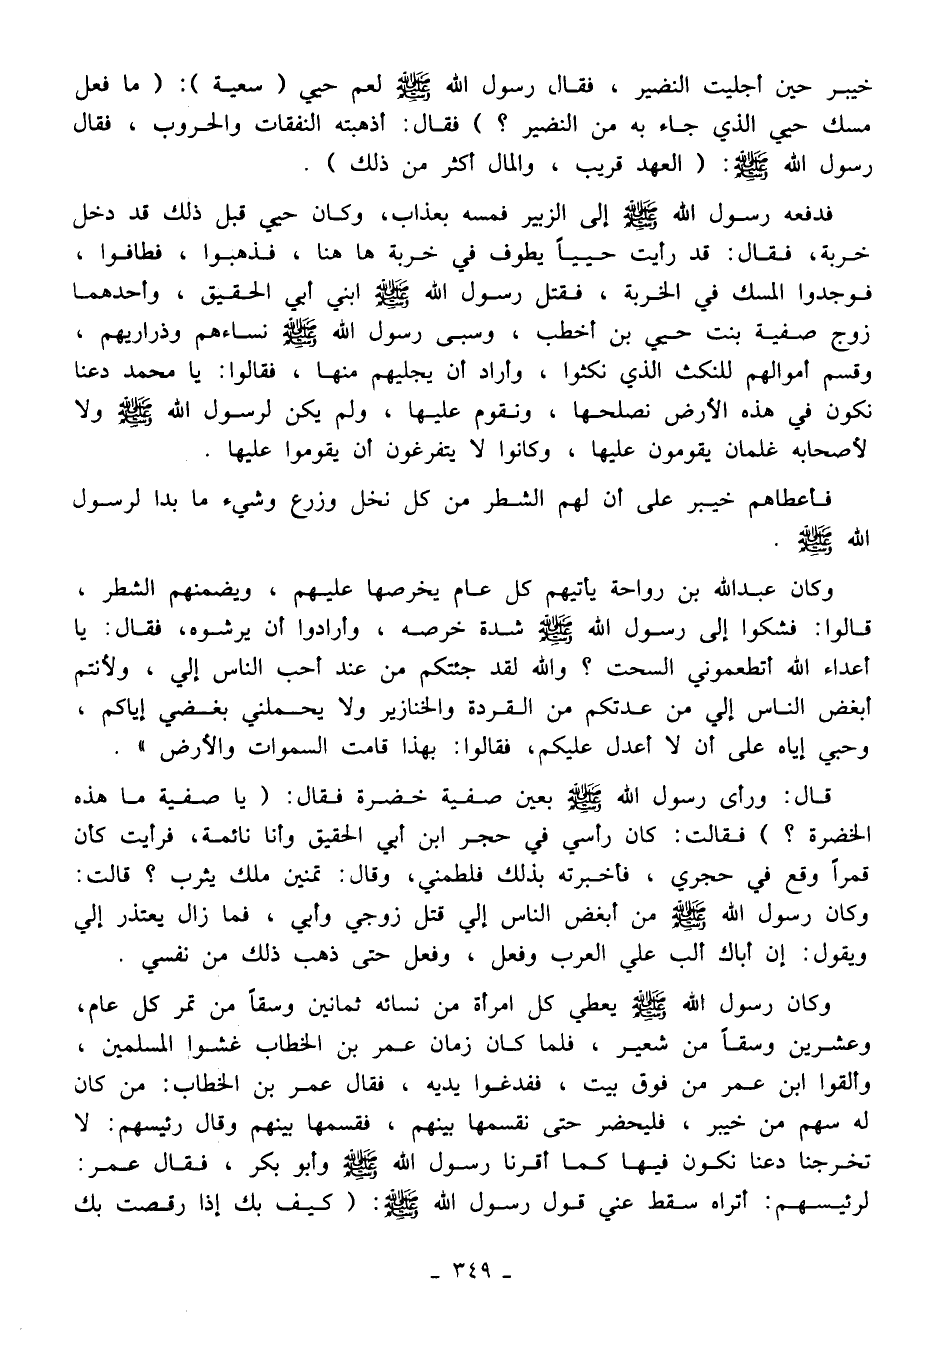 خيبر حين أجليت النضير ، فقال رسول الله ﷺ لعم حيي ( سعية ): ( ما فعل
مسك حيي الذي جاء به من النضير ؟ ) فقال: أذهبته النفقات والحروب ، فقال
رسول الله ﷺ: ( العهد قريب ، والمال أكثر من ذلك ) .
فدفعه رسول الله ﷺ إلى الزبير فمسه بعذاب، وكان حيي قبل ذلك قد دخل
خربة، فقال: قد رأيت حيياً يطوف في خربة ها هنا ، فذهبوا ، فطافوا ،
فوجدوا المسك في الخربة ، فقتل رسول الله ﷺ ابني أبي الحقيق ، وأحدهما
زوج صفية بنت حيي بن أخطب ، وسبى رسول الله ﷺ نساءهم وذراريهم ،
وقسم أموالهم للنكث الذي نكثوا ، وأراد أن يجليهم منها ، فقالوا: يا محمد دعنا
نكون في هذه الأرض نصلحها ، ونقوم عليها ، ولم يكن لرسول الله ﷺ ولا
لأصحابه غلمان يقومون عليها ، وكانوا لا يتفرغون أن يقوموا عليها .
فأعطاهم خيبر على أن لهم الشطر من كل نخل وزرع وشيء ما بدا لرسول
الله ﷺ .
وكان عبدالله بن رواحة يأتيهم كل عام يخرصها عليهم ، ويضمنهم الشطر ،
قالوا: فشكوا إلى رسول الله ﷺ شدة خرصه ، وأرادوا أن يرشوه، فقال: يا
أعداء الله أتطعموني السحت ؟ والله لقد جئتكم من عند أحب الناس إلي ، ولأنتم
أبغض الناس إلي من عدتكم من القردة والخنازير ولا يحملني بغضي إياكم ،
وحبي إياه على أن لا أعدل عليكم، فقالوا: بهذا قامت السموات والأرض » .
قال: ورأى رسول الله ﷺ بعين صفية خضرة فقال: ( يا صفية ما هذه
الخضرة ؟ ) فقالت: كان رأسي في حجر ابن أبي الحقيق وأنا نائمة، فرأيت كأن
قمراً وقع في حجري ، فأخبرته بذلك فلطمني، وقال: تمنين ملك يثرب ؟ قالت:
وكان رسول الله ﷺ من أبغض الناس إلي قتل زوجي وأبي ، فما زال يعتذر إلي
ويقول: إن أباك ألب علي العرب وفعل ، وفعل حتى ذهب ذلك من نفسي .
وكان رسول الله ﷺ يعطي كل امرأة من نسائه ثمانين وسقاً من تمر كل عام،
وعشرين وسقاً من شعير ، فلما كان زمان عمر بن الخطاب غشوا المسلمين ،
وألقوا ابن عمر من فوق بيت ، ففدغوا يديه ، فقال عمر بن الخطاب: من كان
له سهم من خيبر ، فليحضر حتى نقسمها بينهم ، فقسمها بينهم وقال رئيسهم: لا
تخرجنا دعنا نكون فيها كما أقرنا رسول الله ﷺ وأبو بكر ، فقال عمر:
لرئيسهم: أتراه سقط عني قول رسول الله ﷺ: ( كيف بك إذا رقصت بك
- ٣٤٩ -